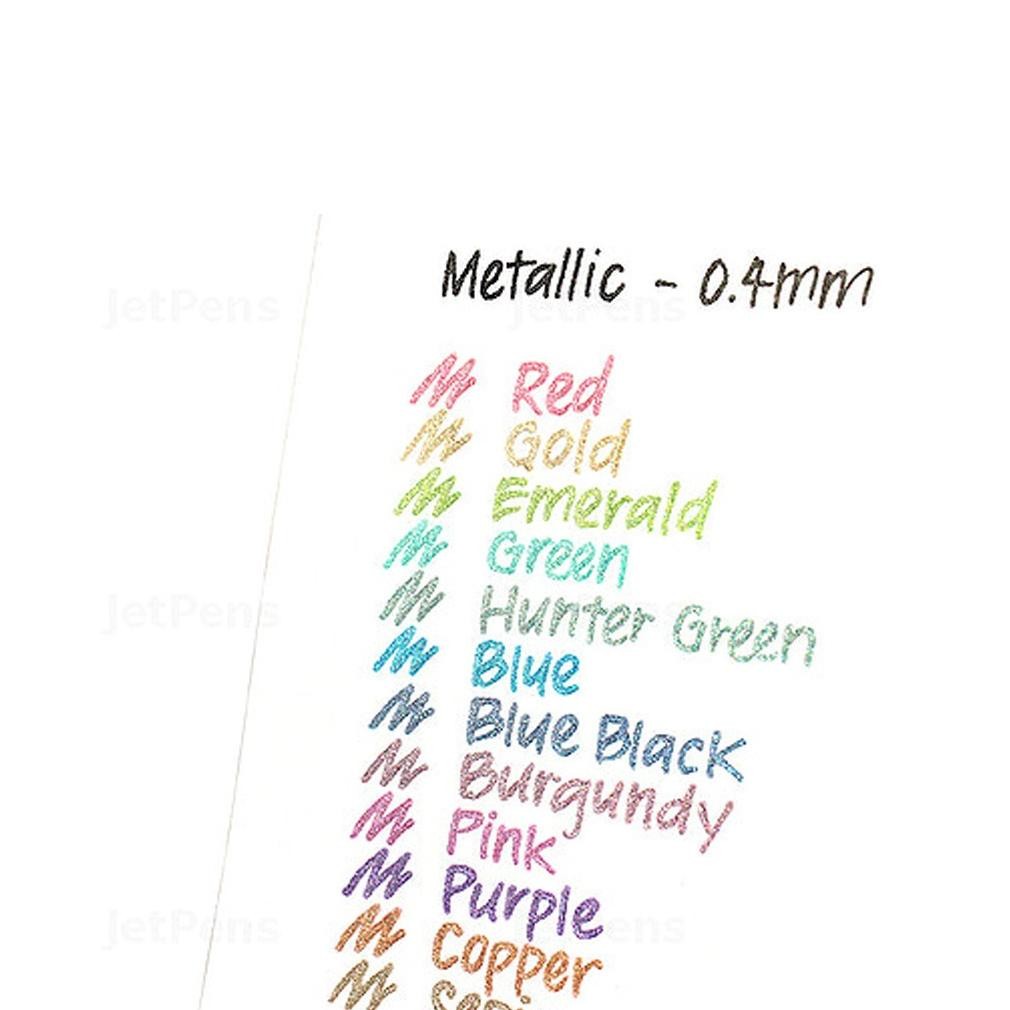 Metallic - 0.4mm
Red
Gold
Emerald
Green
Hunter Green
Blue
Blue Black
Burgundy
Pink
Purple
Copper
JetPens
JetPens
JetPens
JetPens